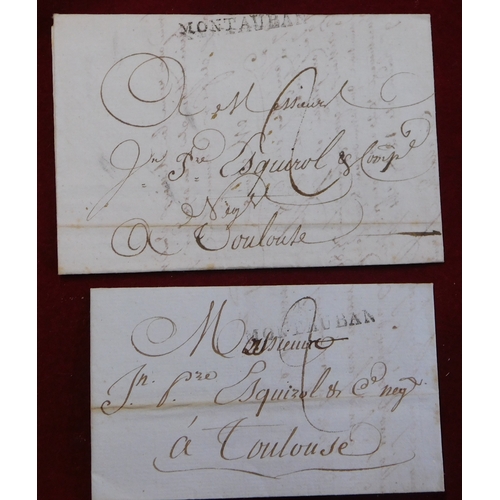 MONTAUBAN
A Messieurs
Jn Pre Esquirol & Compe
Negts
A Toulouse
MONTAUBAN
Messieurs
Jn. Pre Esquirol & Ce negts
à Toulouse